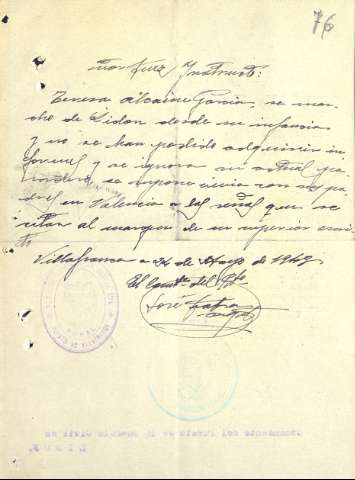 76
Sor Juez Instructor:
Teresa Alcaine Garcia, se mar
chó de Gidon desde su infancia
y no se han podido adquirir in
formes y se ignora su actual pa
radero, se supone con sus pa
dres en Valencia a las señas que se
citan al margen de su superior escri
to
Villafranca a 24 de Mayo de 1942
El Comte del Pto
José